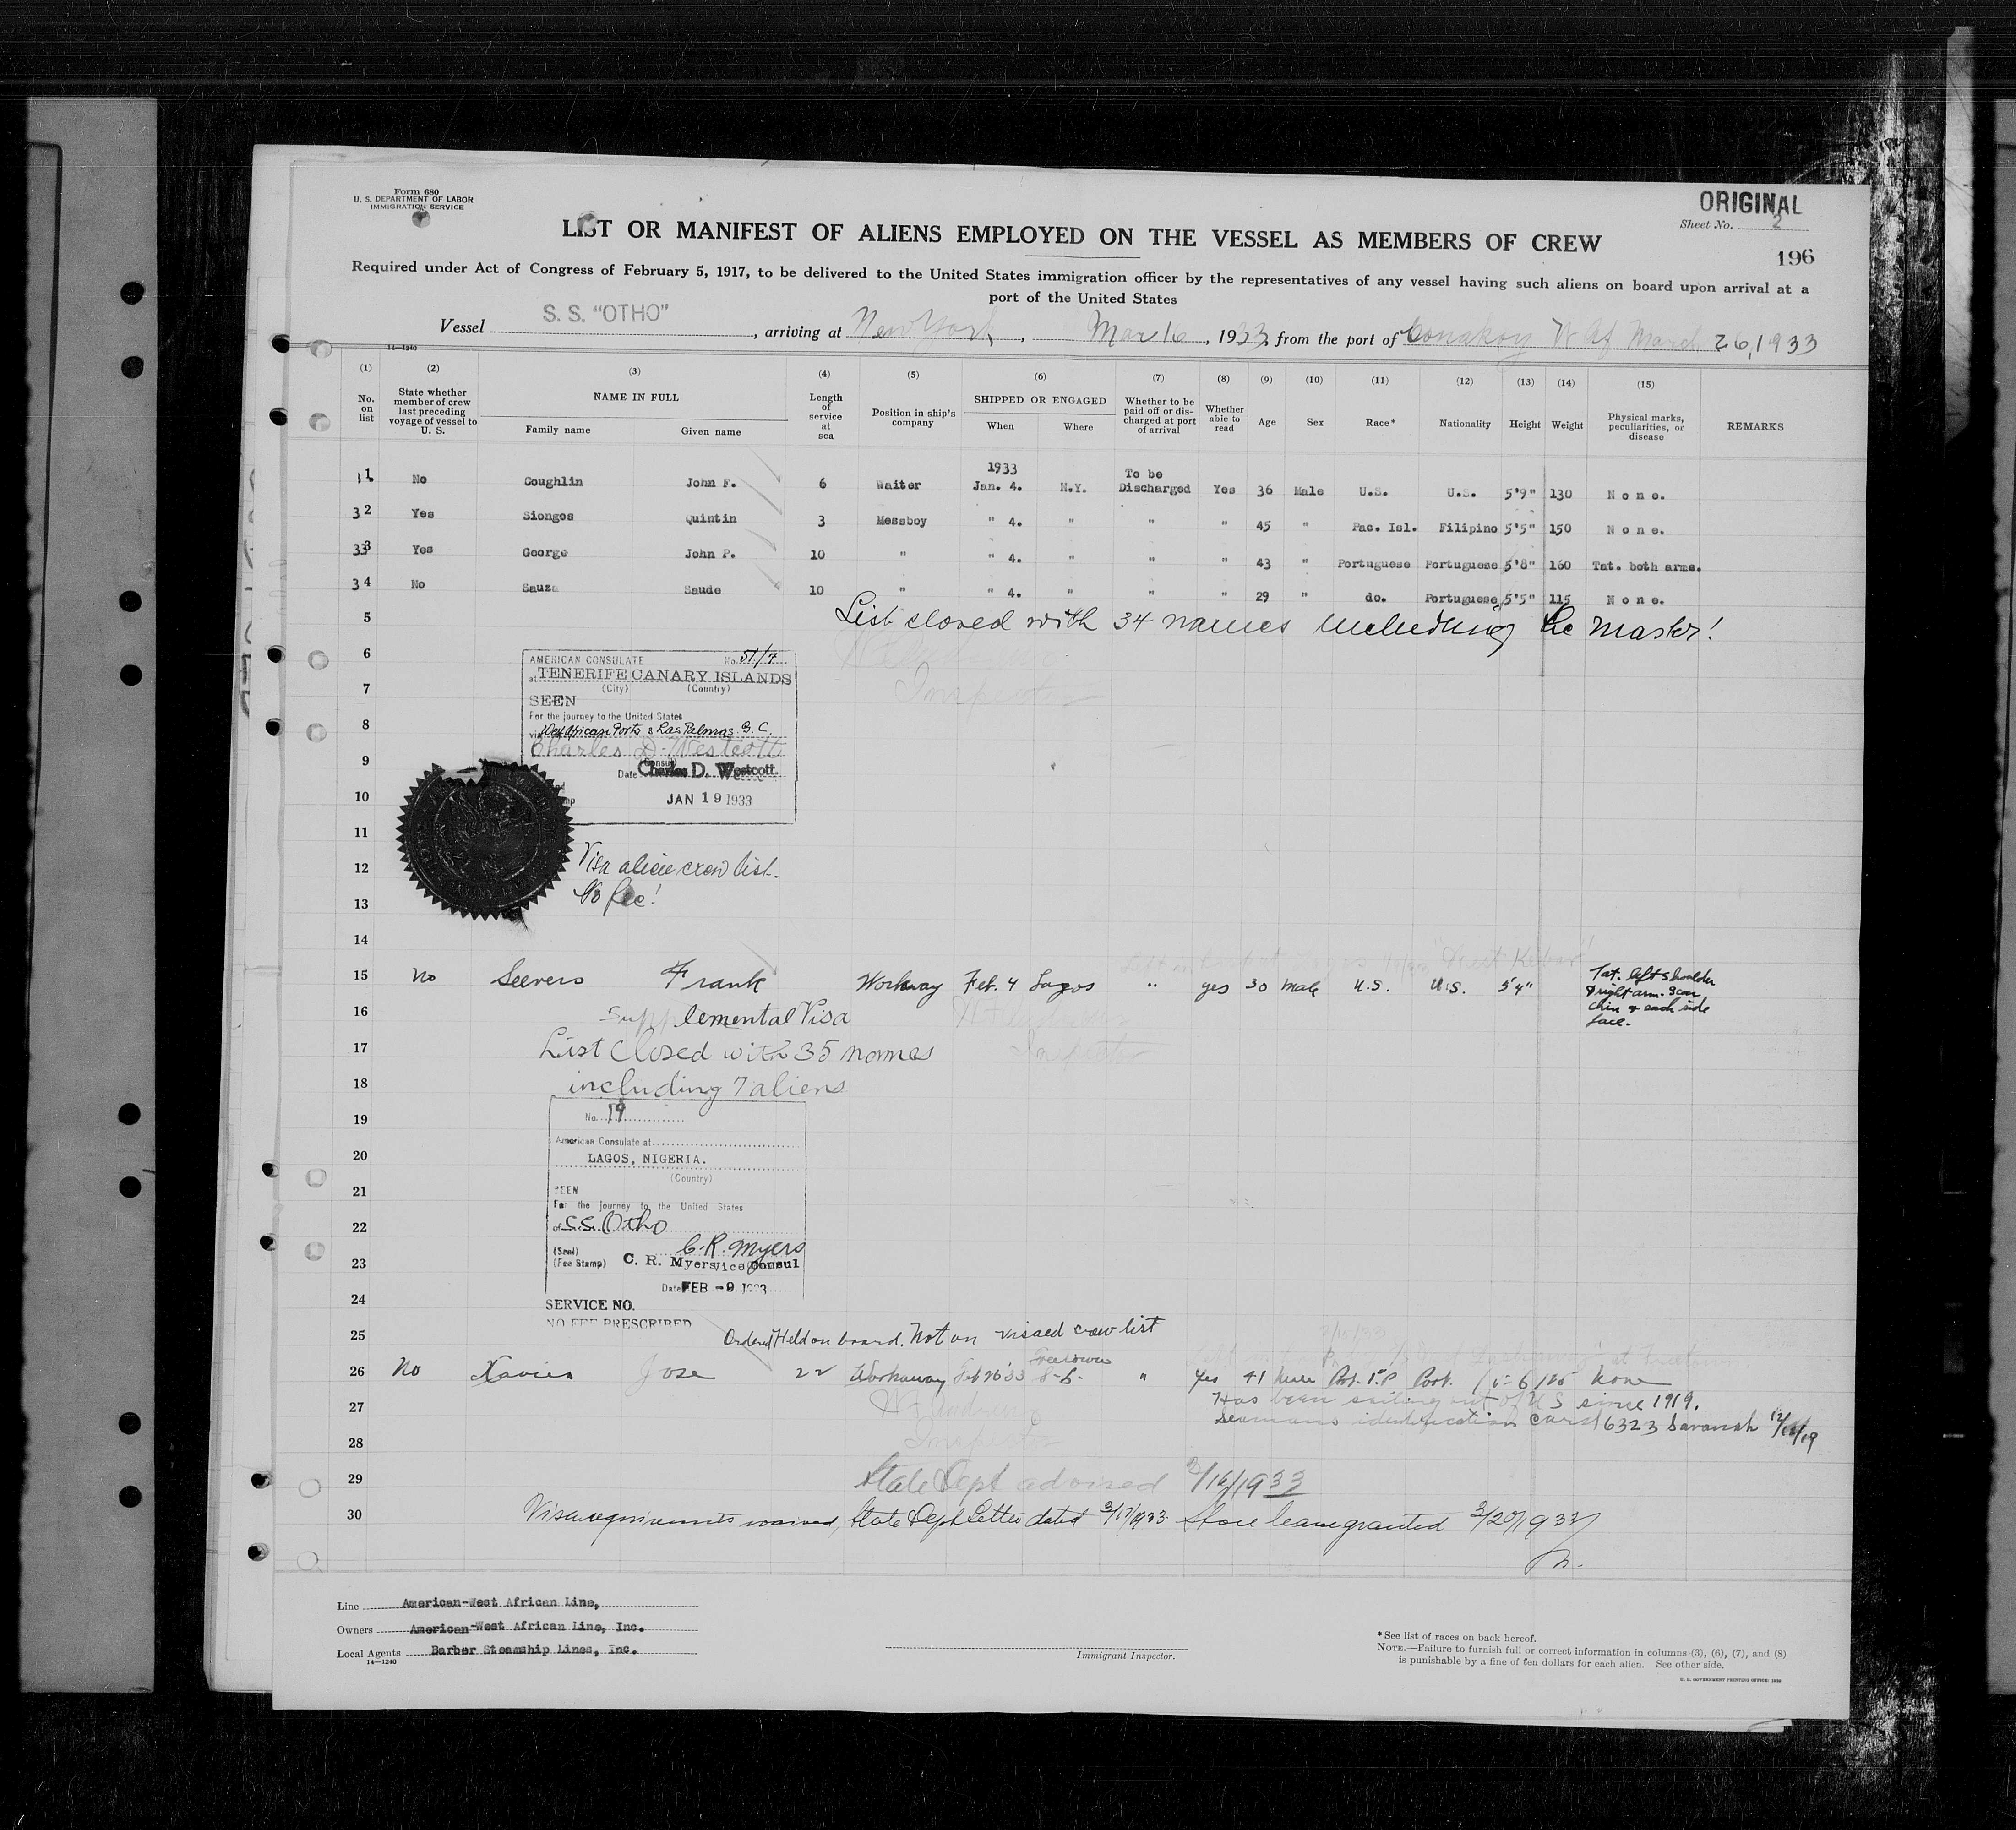 Form 680
U. S. DEPARTMENT OF LABOR
IMMIGRATION SERVICE
ORIGINAL
Sheet No. 2
196
LIST OR MANIFEST OF ALIENS EMPLOYED ON THE VESSEL AS MEMBERS OF CREW
Required under Act of Congress of February 5, 1917, to be delivered to the United States immigration officer by the representatives of any vessel having such aliens on board upon arrival at a
port of the United States
Vessel S. S. "OTHO", arriving at New York, Mar 16, 1933, from the port of Conakry W Af March 26, 1933
14—1240
(1) (2) (3) (4) (5) (6) (7) (8) (9) (10) (11) (12) (13) (14) (15)
No. on list
State whether member of crew last preceding voyage of vessel to U. S.
NAME IN FULL
Family name Given name
Length of service at sea
Position in ship's company
SHIPPED OR ENGAGED
When Where
Whether to be paid off or discharged at port of arrival
Whether able to read
Age Sex Race* Nationality Height Weight
Physical marks, peculiarities, or disease
REMARKS
1 No Coughlin John F. 6 Waiter 1933 Jan. 4. N.Y. To be Discharged Yes 36 Male U.S. U.S. 5'9" 130 None.
32 Yes Siongos Quintin 3 Messboy " 4. " " " 45 " Pac. Isl. Filipino 5'5" 150 None.
33 Yes George John P. 10 " " 4. " " " 43 " Portuguese Portuguese 5'8" 160 Tat. both arms.
34 No Sauza Saude 10 " " 4. " " " 29 " do. Portuguese 5'5" 115 None.
5 List closed with 34 names including the Master!
6
Inspector
7
8
9
10
11
12
13
14
AMERICAN CONSULATE No. 51/7
at TENERIFE CANARY ISLANDS
(City) (Country)
SEEN
For the journey to the United States
via W. African Ports & Las Palmas G. C.
Charles D. Westcott
(Consul)
Date Charles D. Westcott.
JAN 19 1933
Visa alien crew list.
No fee!
15 No Seevers Frank Workaway Feb. 4 Lagos " yes 30 male U.S. U.S. 5'4" Tat. left shoulder & right arm. Scar chin & each side face.
16 Supplemental Visa
17 List Closed with 35 names
Inspector
18 including 7 aliens
19
20
21
22
23
24
No. 19
American Consulate at
LAGOS, NIGERIA.
(Country)
SEEN
For the journey to the United States
of S.S. Otho
(Seal) C. R. Myers
(Fee Stamp) C. R. Myers Vice Consul
Date FEB -9 1933
SERVICE NO.
NO FEE PRESCRIBED
25 Ordered Held on board. Not on visaed crew list
26 No Xavier Jose 22 Workaway Feb 26 '33 Freetown S-L- " Yes 41 Male Port. Port. 5-6 None
27 Has been sailing out of US since 1919.
Seamans identification card 6323 Savanah 12/19
28 Inspector
29 State Dept advised 3/16/1933
30 Visa requirements waived, State Dept Letter dated 3/17/1933. Shore leave granted 3/20/1933
Line American-West African Line,
Owners American-West African Line, Inc.
Local Agents Barber Steamship Lines, Inc.
14—1240
Immigrant Inspector.
*See list of races on back hereof.
NOTE.—Failure to furnish full or correct information in columns (3), (6), (7), and (8)
is punishable by a fine of ten dollars for each alien. See other side.
U. S. GOVERNMENT PRINTING OFFICE